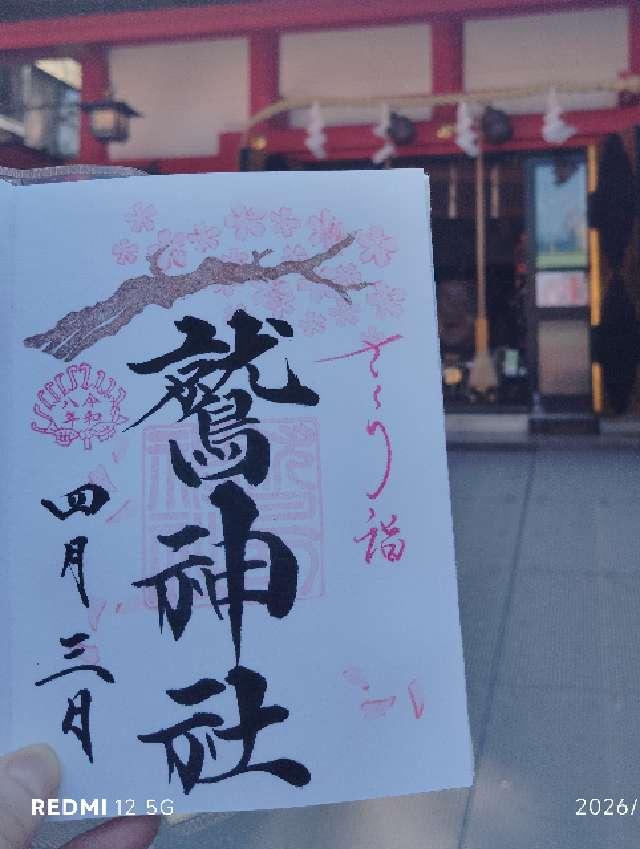 さくら詣
鷲神社
令和
八年
四月三日
REDMI 12 5G
2026/